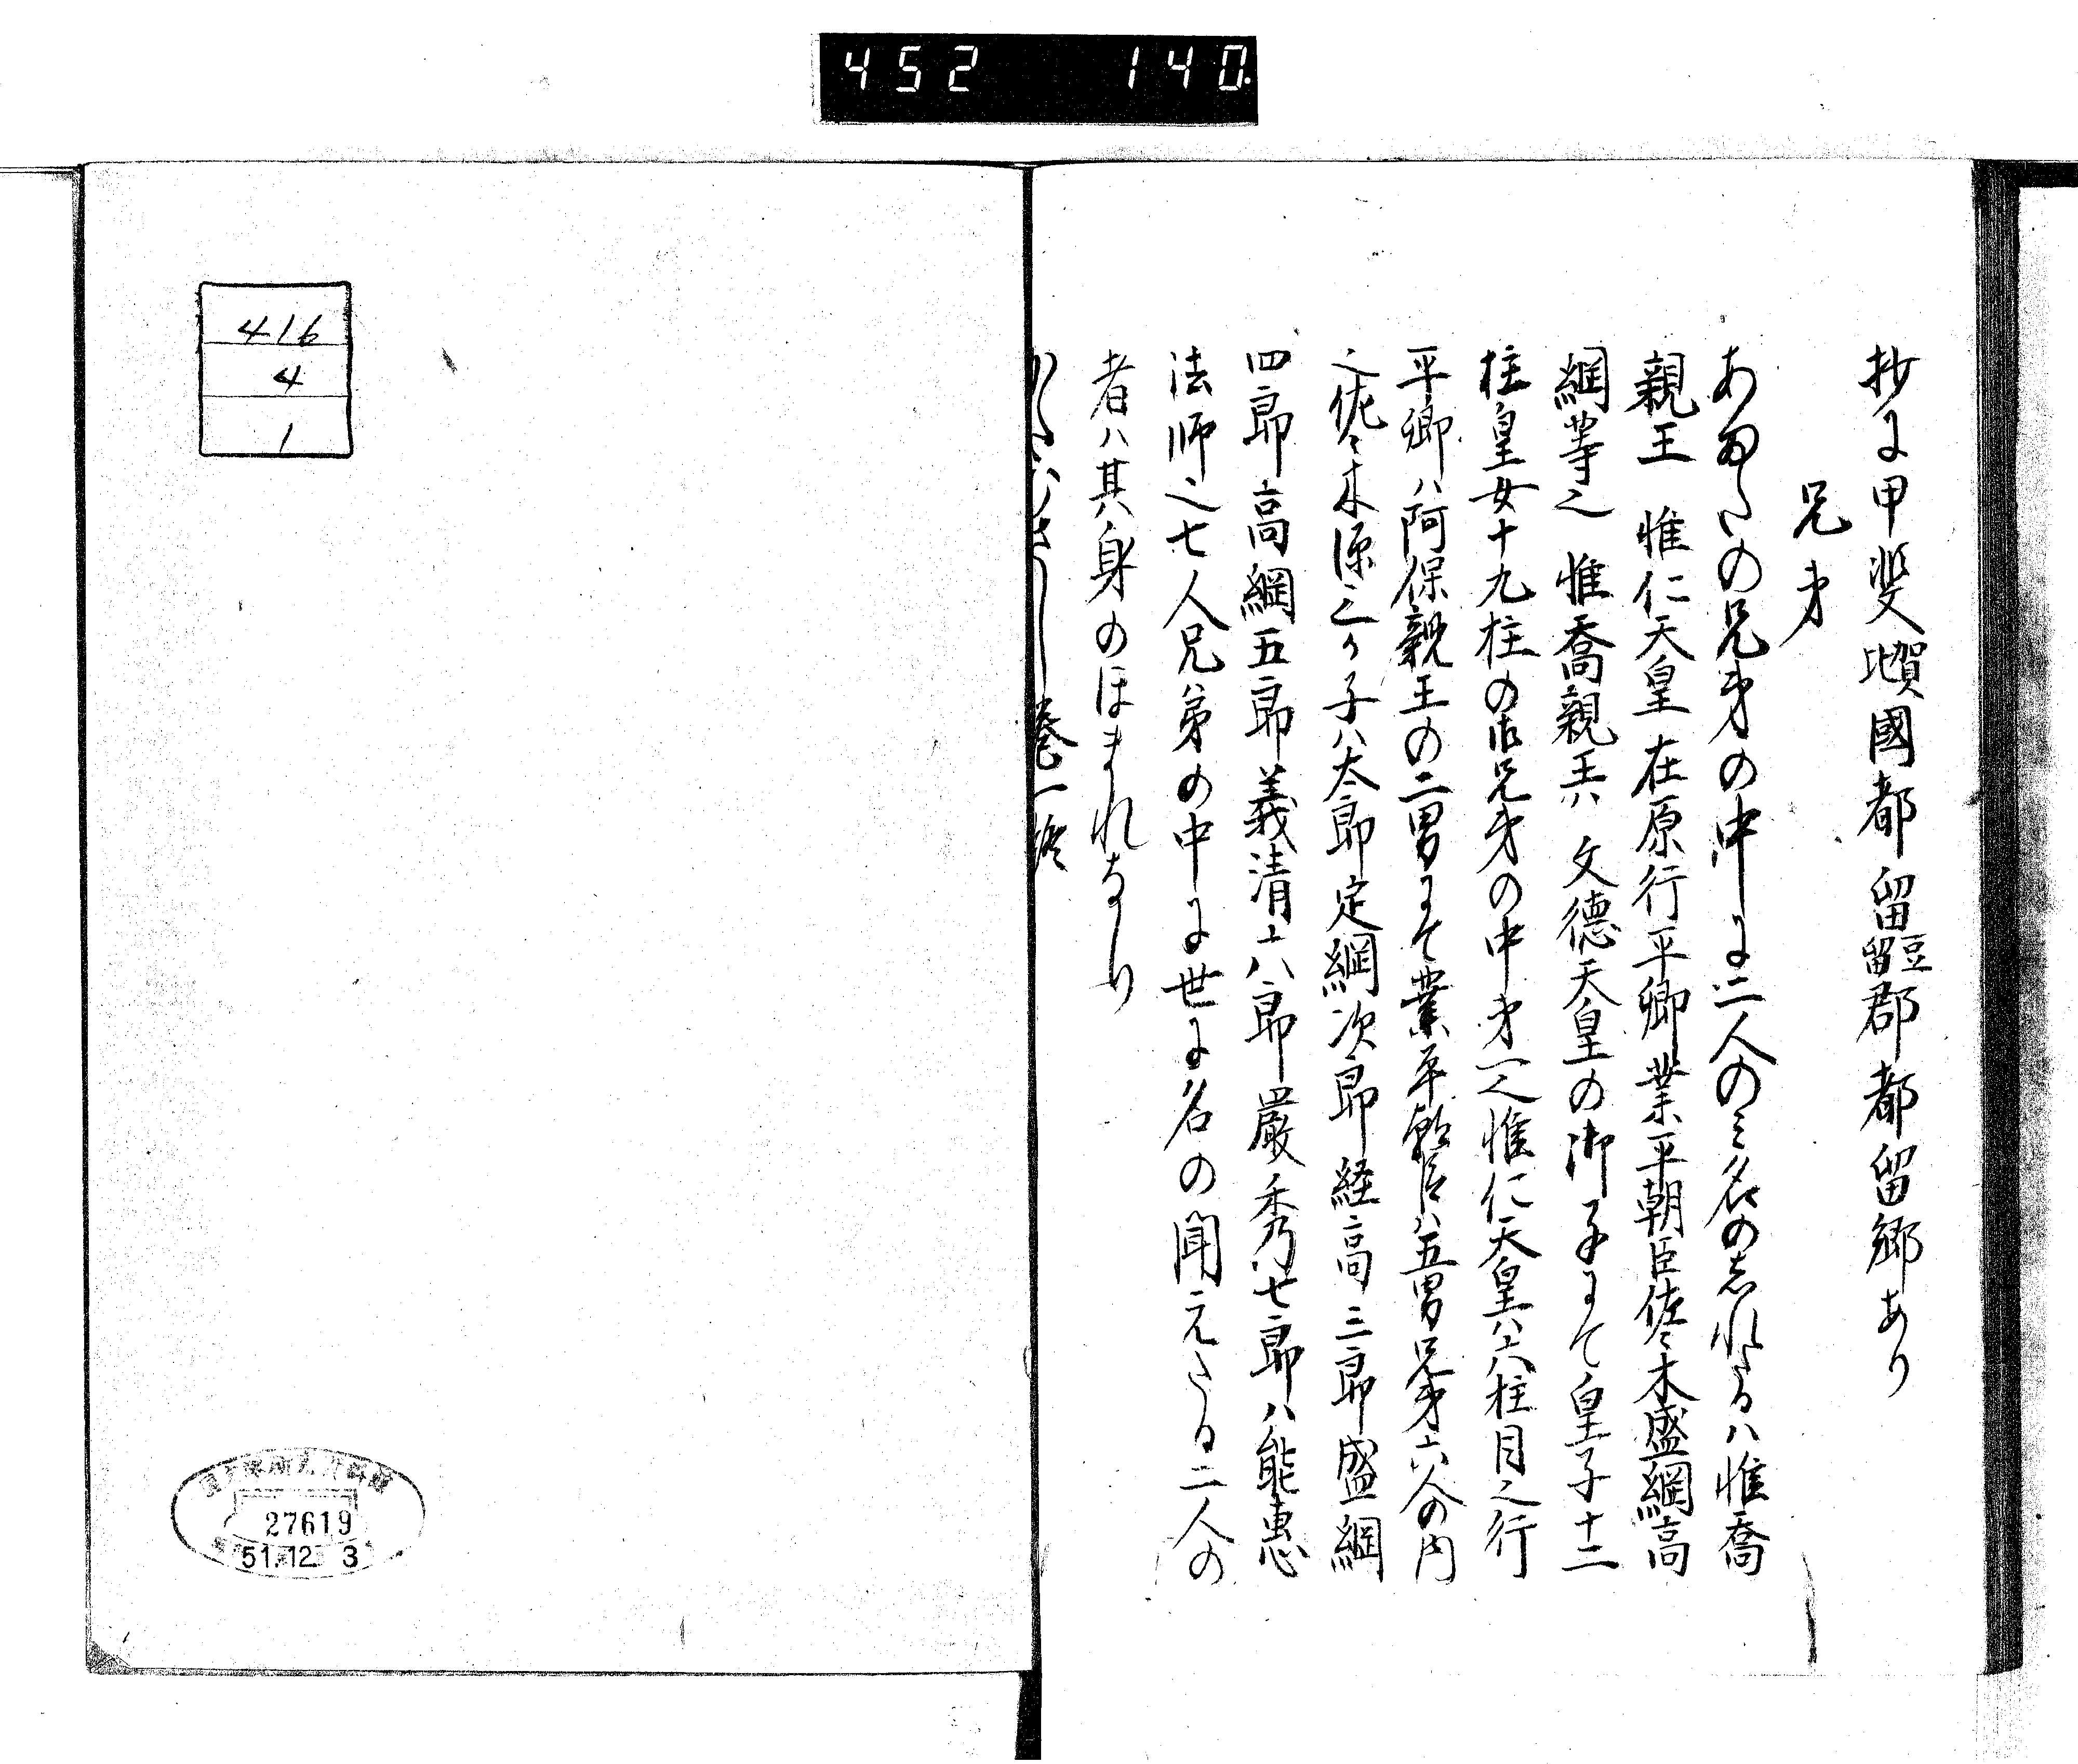 452 140
抄に甲斐國都留豆留郡都留郷あり
兄弟
あまたの兄弟の中に二人のミ名の志れたるハ惟喬
親王 惟仁天皇 在原行平卿業平朝臣佐々木盛綱高
綱等也 惟喬親王ハ 文德天皇の御子にて皇子十二
柱皇女十九柱の御兄弟の中弟一也惟仁天皇ハ六柱目也行
平卿ハ阿保親王の二男にて業平朝臣ハ五男兄弟六人の内
也佐々木源三が子ハ太郎定綱次郎経高三郎盛綱
四郎高綱五郎義清六郎ハ厳秀七郎ハ能恵
法師也七人兄弟の中に世に名の聞えたる二人の
者ハ其身のほまれなり
巻一終
416
4
1
27619
51.12.3